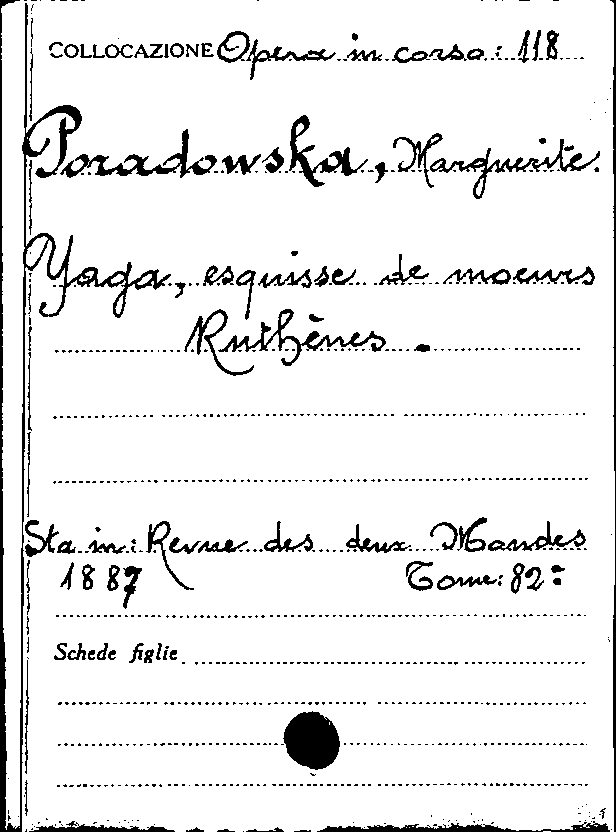 COLLOCAZIONE Opera in corso: 118
Poradowska, Marguerite.
Yaga, esquisse de moeurs
Ruthènes.
Sta in: Revue des deux Mondes
1887 Tome: 82:
Schede figlie